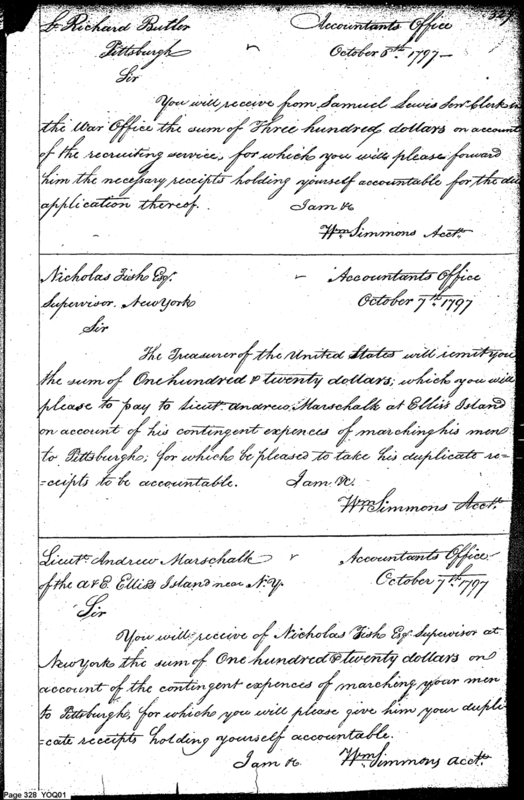 Lt. Richard Butler Accountants Office 327
Pittsburgh October 5th. 1797 -
Sir
You will receive from Samuel Lewis Senr. Clerk in
the War Office the sum of Three hundred dollars on account
of the recruiting service, for which you will please forward
him the necessary receipts holding yourself accountable for the due
application thereof. I am &c
Wm. Simmons Acct.
Nicholas Fish Esqr. Accountants Office
Supervisor. New York October 7th. 1797
Sir
The Treasurer of the United States will remit you
the sum of One hundred & twenty dollars; which you will
please to pay to Lieut. Andrew Marschalk at Ellis's Island
on account of his contingent expences of marching his men
to Pittsburgh; for which be pleased to take his duplicate re=
=ceipts to be accountable. I am &c.
Wm. Simmons Acct.
Lieut. Andrew Marschalk Accountants Office
of the A & E. Ellis's Island near N.Y. October 7th. 1797
Sir
You will receive of Nicholas Fish Esqr. Supervisor at
New York the sum of One hundred & twenty dollars on
account of the contingent expences of marching your men
to Pittsburgh, for which you will please give him your dupli=
=cate receipts holding yourself accountable.
I am &c Wm. Simmons Acct.
Page 328 YOQ01